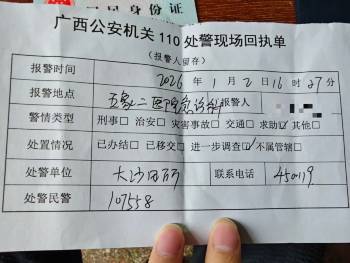 民身份证
广西公安机关110处警现场回执单
(报警人留存)
报警时间 2026年1月2日16时07分
报警地点 二医院急诊科 报警人
警情类型 刑事□ 治安□ 灾害事故□ 交通□ 求助☑ 其他□
处置情况 已办结□ 已移交□ 进一步调查☑ 不属管辖□
处警单位 大沙田所 联系电话 450119
处警民警 107558